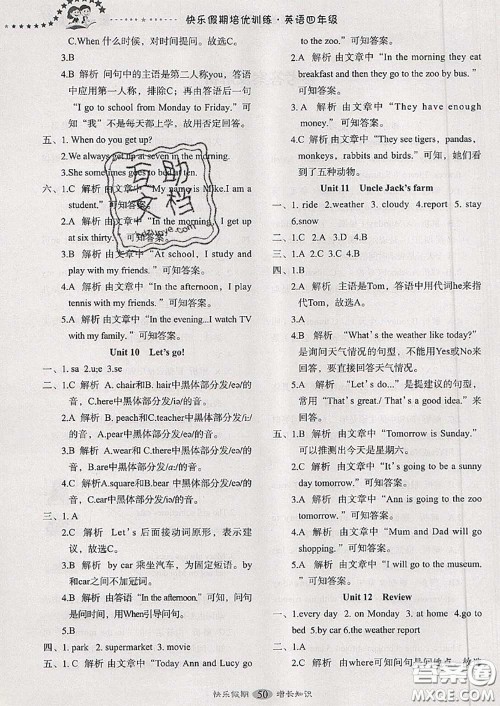 快乐假期培优训练·英语四年级
C,When 什么时候，对时间提问。故选C。
3.B
4.B 解析 问句中的主语是第二人称you，答语
中应用第一人称，排除C；再由文章中
"I go to school from Monday to Friday."可
知"我"不是每天都上学，故用否定回答。
5.B
五、1. When do you get up?
2.We always get up at seven in the morning.
3.She some times goes to bed at
六、1.C 解析 由文章中"My name is Mike.I am a
student."可知答案。
2.A 解析 由文章中"In the morning, I get up
at six thirty."可知答案。
3.B 解析 由文章中"At school, I study and
play with my friends."可知答案。
4.A 解析 由文章中"In the afternoon, I play
tennis with my friends."可知答案。
5.A 解析 由文章中"In the evening...I watch TV
with my family."可知答案。
Unit 10 Let's go!
一、1. sa 2.u;e 3.se
二、1.C 解析 A. chair和B. hair中黑体部分发/eə/的
音，C.park中黑体部分发/ɑː/的音。
2.A 解析 B. peach和C.teacher中黑体部分发/iː/
的音，A.pear中黑体部分发/eə/的音。
3.B 解析 A.wear和C.there中黑体部分发/eə/的
音，B.are中黑体部分发/ɑː/的音。
4.C 解析A.square和B.bear中黑体部分发/eə/的音，
三、1. A
2.C 解析 Let's 后面接动词原形，表示建
议，故选C。
3.C 解析 by car 乘坐汽车，为固定短语，by
和car之间不加冠词。
4.B 解析 由答语"In the afternoon."可知，问句
是问时间，用When引导问句。
5.B
四、1. park 2. supermarket 3. movie
五、1. C 解析 由文章中"Today Ann and Lucy go
to the zoo."可知答案。
2.B 解析 由文章中"In the morning they eat
breakfast and then they go to the zoo by bus."
可知答案。
3.A 解析 由文章中"They have enough
money."可知答案。
4.C 解析 由文章中"They see tigers, pandas,
monkeys, rabbits and birds."可知，她们看
到了五种动物。
Unit 11 Uncle Jack's farm
一、1. ride 2. weather 3. cloudy 4.report 5. stay
6.snow
二、1.C 2.A 3.D 4.B
三、1.A 2.C 3.C 4.B
四、1.B
2.A 解析 主语是Tom，答语中用代词he来指
代Tom，故选A。
3.B
4.B 解析 "What's the weather like today?"是
询问天气情况的句型，不能用Yes或No来
回答，要直接回答天气情况。
5.A 解析 "Let's do..."是提建议的句型，常
用"That's great./ That's a good idea."来
回答。
五、1.B 解析 由文章中"Tomorrow is Sunday."
可以推测出今天是星期六。
2.B 解析 由文章中"It's going to be a sunny
day tomorrow."可知答案。
3.A 解析 由文章中"Ann is going to the zoo
tomorrow."可知答案。
4.A 解析 由文章中"Mum and Dad will go
shopping."可知答案。
5.C 解析 由文章中"I will go to the museum.
"可知答案。
Unit 12 Review
一、1.every day 2. on Monday 3. at home 4.go
to bed 5.by car 6.the weather report
二、1. A
快乐假期 50 增长知识
互助文档
作业帮
MXQE.COM